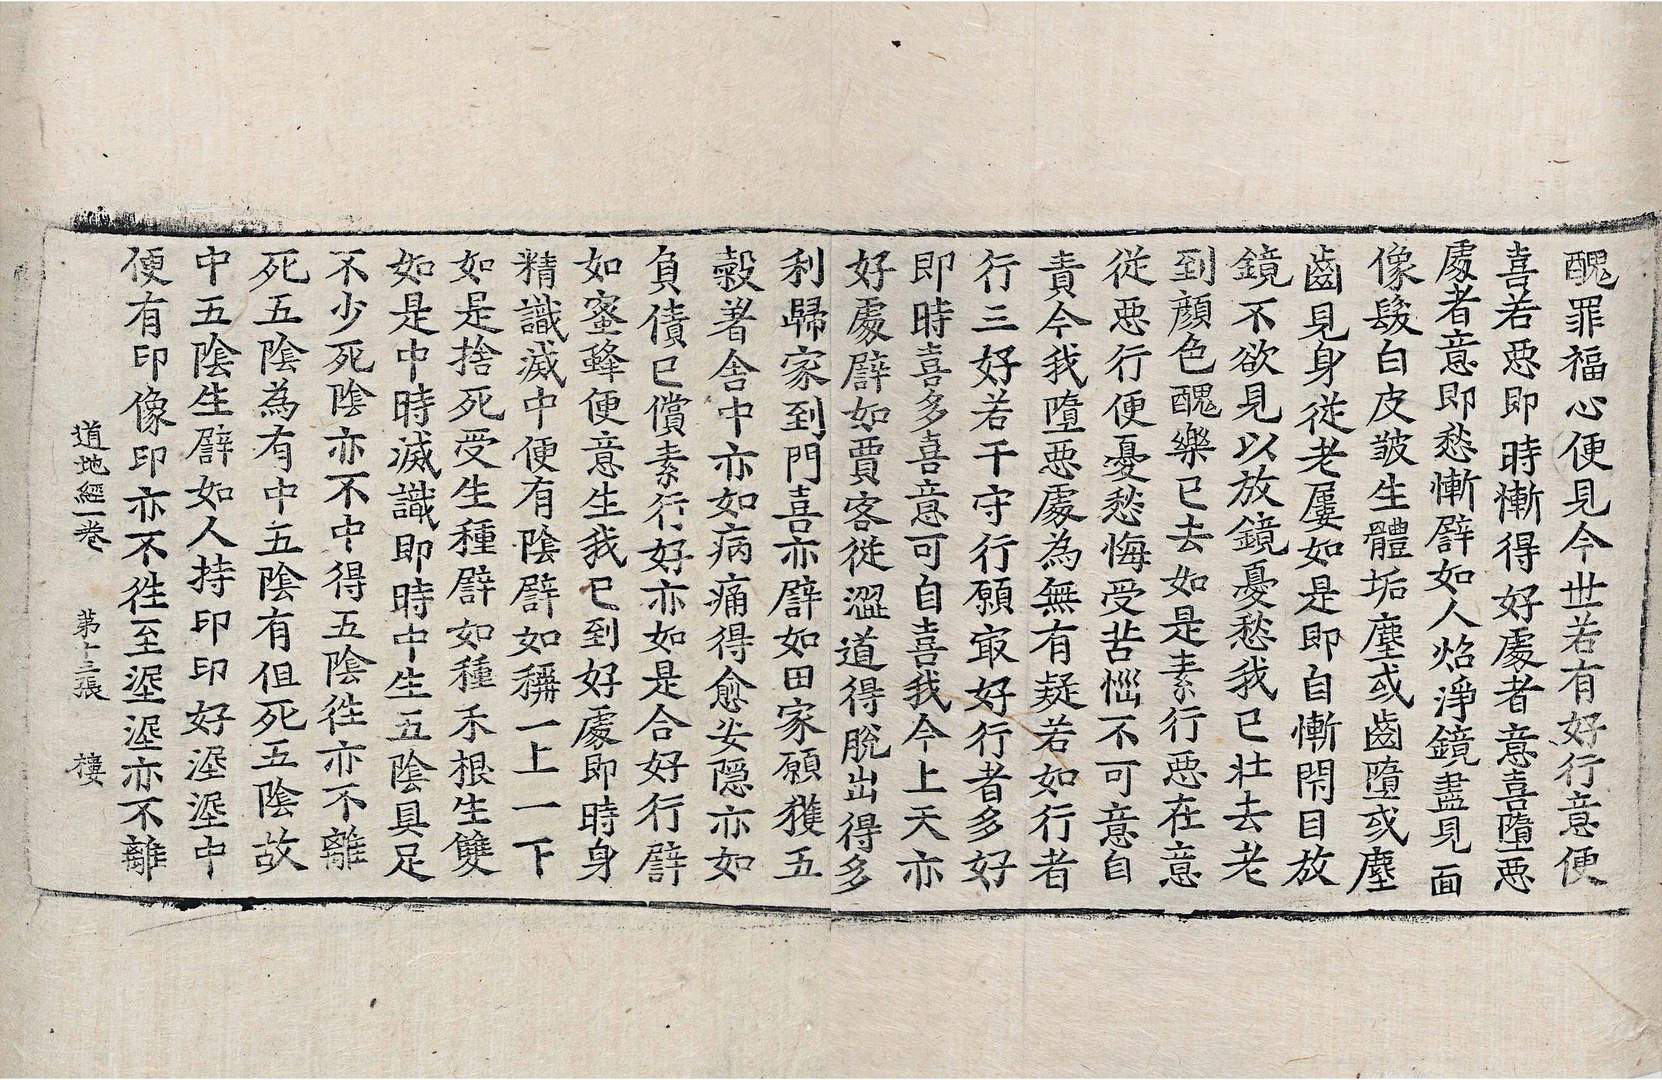 醜罪福心便見今世若有好行意便
喜若惡即時慚得好處者意喜墮惡
處者意即愁慚譬如人炤淨鏡盡見面
像髮白皮皺生體垢塵或齒墮或塵
齒見身從老屢如是即自慚閇目放
鏡不欲見以放鏡憂愁我已壯去老
到顏色醜樂已去如是素行惡在意
從惡行便憂愁悔受苦惱不可意自
責今我墮惡處為無有疑若如行者
行三好若干守行願㝡好行者多好
即時喜多喜意可自喜我今上天亦
好處譬如賈客從澀道得脫出得多
利歸家到門喜亦譬如田家願獲五
穀著舍中亦如病痛得愈安隱亦如
負債已償素行好亦如是合好行譬
如蜜蜂便意生我已到好處即時身
精識滅中便有陰譬如稱一上一下
如是捨死受生種譬如種禾根生雙
如是中時滅識即時中生五陰具足
不少死陰亦不中得五陰徃亦不離
死五陰為有中五陰有但死五陰故
中五陰生譬如人持印印好埿埿中
便有印像印亦不徃至埿埿亦不離
道地經一卷　第十三張　樓